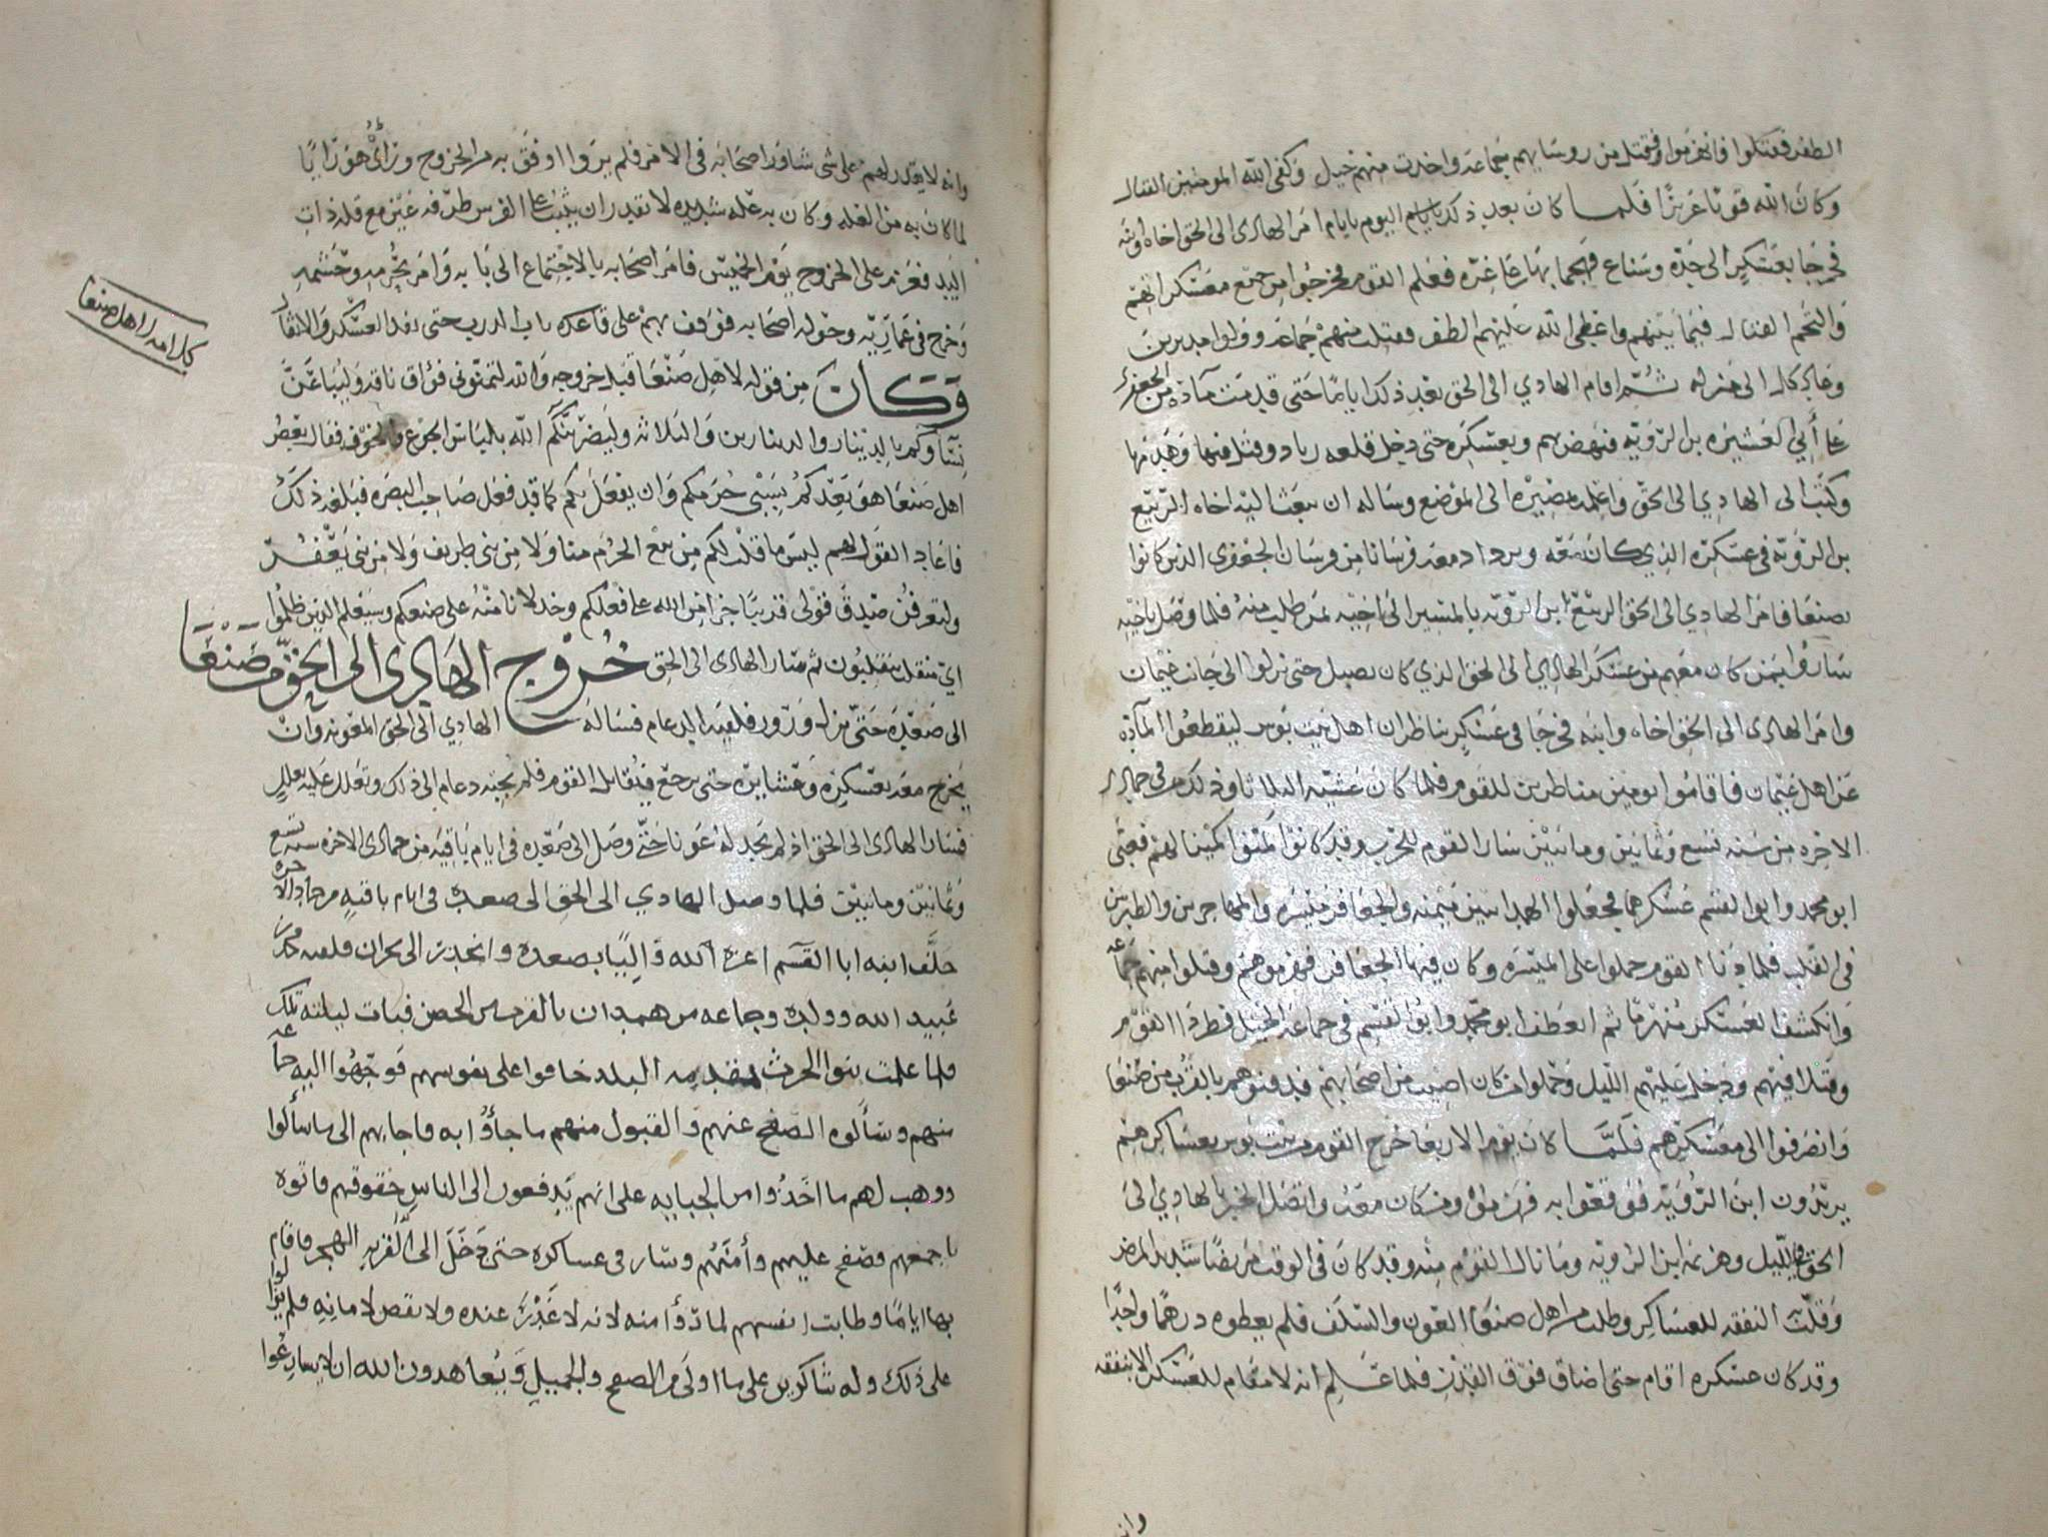 الظفر فقتلوا وانهزموا وقتل من روسايهم جماعه واخذت منهم خيل وكفى الله المومنين القتال
وكان الله قويا عزيزا فلما كان بعد ذلك اليوم بايام امر الهادى الى الحق اخاه وابنه
فخرجا بعسكر الى حده وسناع فهجما بها على غره فعلم القوم فخرجوا من جميع معسكراتهم
والتحم القتال فيما بينهم واعطى الله عليهم الظفر فقتلت منهم جماعه وولوا مدبرين
وعاد كل الى منزله ثم اقام الهادي الى الحق بعد ذلك اياما حتى قدمت مآدة من الجعفري
على أبي العشيره بن الرويه فنهض بهم وبعسكره حتى دخل قلعه زياد وقتل فيها وهدمها
وكتب الى الهادي الى الحق واعلمه بمصيره الى الموضع وساله ان يبعث اليه اخاه الربيع
بن الرويه في عسكره الذي كان معه ويزداد معه فرسانا من فرسان الجعفري الذين كانوا
بصنعا فامر الهادي الى الحق الربيع ابن الرويه بالمسير الى اخيه لمن طلب منه فلما وصل باخيه
ساروا بمن كان معهم من عسكر الهادي الى الحق الذي كان بصبل حتى نزلوا الى جانب غيمان
وامر الهادى الى الحق اخاه وابنه فخرجا في عسكر يناظران اهل بيت بوس ليقطعوا المآدة
عن اهل غيمان فاقاموا يومين مناظرين للقوم فلما كان عشية الثلاثا وذلك في جمادى
الاخره من سنه تسع وثمانين ومائتين سار القوم للحرب وقد كانوا كمنوا كمينا لهم فعبى
ابو محمد وابو القسم عسكرهما فجعلوا الهمدانيين ميمنه والجعافر ميسره والمهاجرين والطبريين
في القلب فلما دنا القوم حملوا على الميسره وكان فيها الجعافر فهزموهم وقتلوا منهم جماعه
وانكشف العسكر منهزما ثم انعطف ابو محمد وابو القسم في جماعه الخيل فطردا القوم
وقتلا فيهم ودخل عليهم الليل وحملوا من كان اصيب من اصحابهم فدفنوهم بالقرب من صنعا
وانصرفوا الى معسكرهم فلما كان يوم الاربعا خرج القوم من بيت بوس بعساكرهم
يريدون ابن الرويه فوقعوا به فهزموه ومن كان معه واتصل الخبر بالهادي الى
الحق في الليل وهزيمة ابن الرويه وما نال القوم منه وقد كان في الوقت مريضا شديد المرض
وقلت النفقه للعساكر وطلب من اهل صنعا العون والسلف فلم يعطوه درهما واحدا
وقد كان عسكره اقام حتى اضاق فوق القدر فلما علم انه لا مقام للعسكر الا بنفقه
وانه
وانه لا يقدر لهم على شى شاور اصحابه فى الامر فلم يروا اوفق به من الخروج وراى هو رايا
لما كان به من العله وكان به علة شديده لا يقدر ان يثبت على الفرس طرفه عين مع قله ذات
اليد فعزم على الخروج يوم الخميس فامر اصحابه بالاجتماع الى بابه وامر بحرمه وحشمه
وخرج فى عماريه وحوله اصحابه فوقف بهم على قاعده باب الدرب حتى نفد العسكر والاثقال
وكان من قوله لاهل صنعا قبل خروجه والله لتمنوني فواق ناقه وليباعن
نسآوكم بالدينار والدينارين والثلاثه وليضربنكم الله بلباس الجوع والخوف فقال بعض
اهل صنعا هو يعدكم بسبى حرمكم وان يفعل بكم كما قد فعل صاحب البصره فبلغه ذلك
فاعاد القول لهم ليس ما قلت لكم من بيع الحرم منا ولا من بنى طريف ولا من بنى يعفر
ولتعرفن صدق قولى قريبا جزا من الله على فعلكم وخذلانا منه على صنعكم وسيعلم الذين ظلموا
اي منقلب ينقلبون ثم سار الهادى الى الحق خروج الهادى الى الحق من صنعا
الى صعده حتى نزل ورور فلقيه الدعام فساله الهادي الى الحق المعونه وان
يخرج معه بعسكره وعشايره حتى يرجع فيقاتل القوم فلم يجبه دعام الى ذلك وتعلل عليه بعلل
فسار الهادى الى الحق اذ لم يجد له عونا حتى وصل الى صعده فى ايام باقيه من جمادى الاخره سنه تسع
وثمانين ومائتين فلما وصل الهادي الى الحق الى صعدة فى ايام باقيه من جمادى الاخره
خلف ابنه ابا القسم اعزه الله واليا بصعده وانحدر الى نجران فلقيه محمد بن
عبيد الله وولده وجماعه من همدان بالقرب من الحصن فبات ليلته تلك
فلما علمت بنوا الحرث بمقدمه البلد خافوا على نفوسهم فوجهوا اليه جماعه
منهم وسألوه الصفح عنهم والقبول منهم ما جاؤا به فاجابهم الى ما سألوا
ووهب لهم ما اخذوا من الجبايه على انهم يدفعون الى الناس حقوقهم فاتوه
باجمعهم وصفح عليهم وأمنهم وسار فى عساكره حتى دخل الى القريه الهجر فاقام
بها اياما وطابت انفسهم لما رأوا منه لانه لا غدر عنده ولا نقص لامانه فلم يزالوا
على ذلك وله شاكرين على ما اولى من الصفح والجميل ويعاهدون الله ان لا يسارعوا
كلامه لاهل صنعا